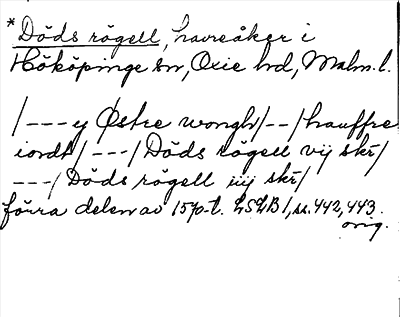 *Döds rögell, havreåker i
Hököpinge sn, Oxie hd, Malm. l.
/---y Østre wongh/--/hauffre
iordt/---/Döds rögell vij skr/
---/Döds rögell iiij skr/
förra delen av 1570-t. LSLB 1, ss. 442, 443.
orig.